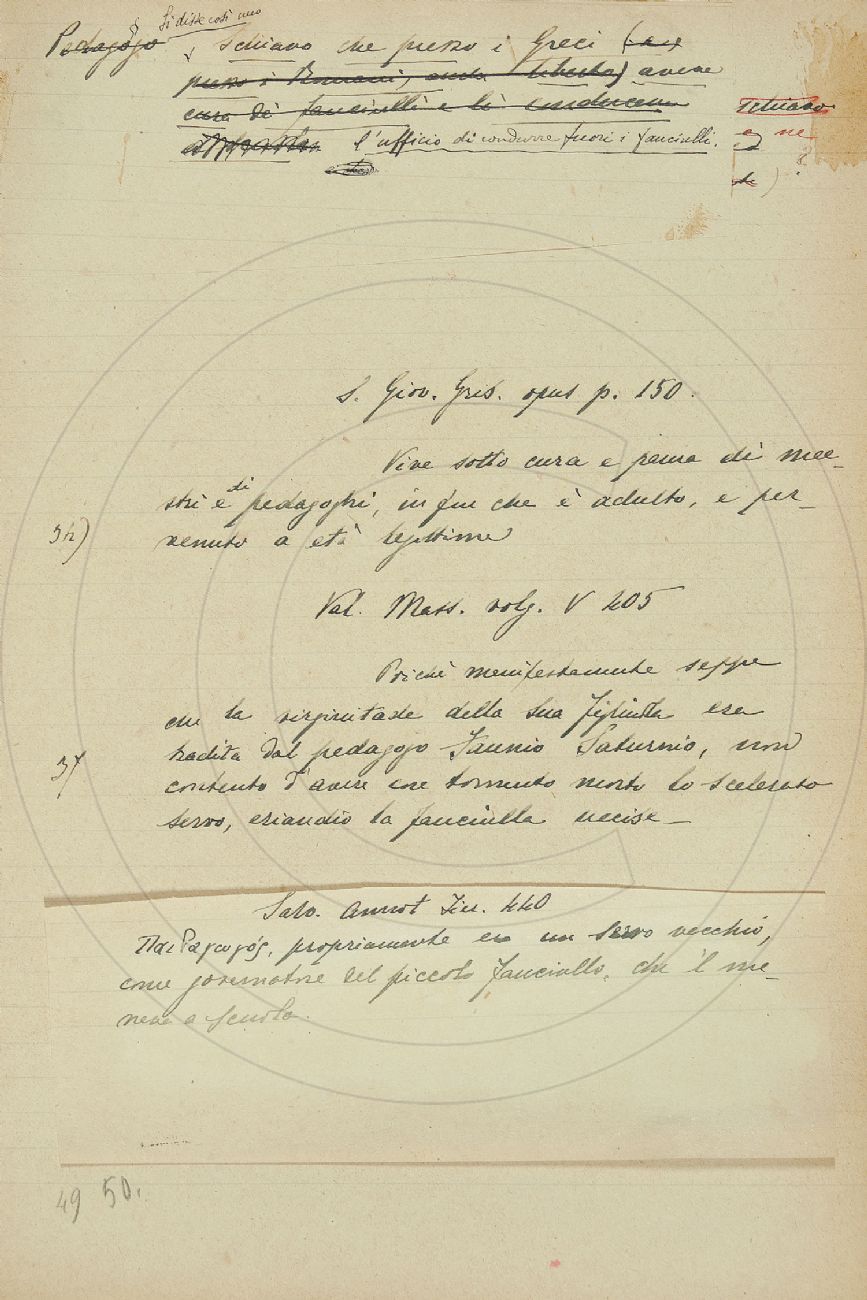 Si disse così uno
Pedagogo Schiavo che presso i Greci (e,
presso i Romani, anche liberto) aveva
cura dei fanciulli e li conduceva
schiavo
l'ufficio di condurre fuori i fanciulli.
S. Giov. Gris. opus p. 150.
Vive sotto cura e paura di mae-
stri e di pedagoghi, in fin che è adulto, e per-
venuto a età legittima
Val. Mass. volg. V 405
Poichè manifestamente seppe
che la virginitade della sua figliuola era
tradita dal pedagogo Fannio Saturnio, non
contento d'avere con tormento morto lo scelerato
servo, eziandio la fanciulla uccise—
Salv. Annot Fier. 440
Παιδαγωγός, propriamente era un servo vecchio,
come governatore del piccolo fanciullo, che 'l me-
nava a scuola.
49 50.